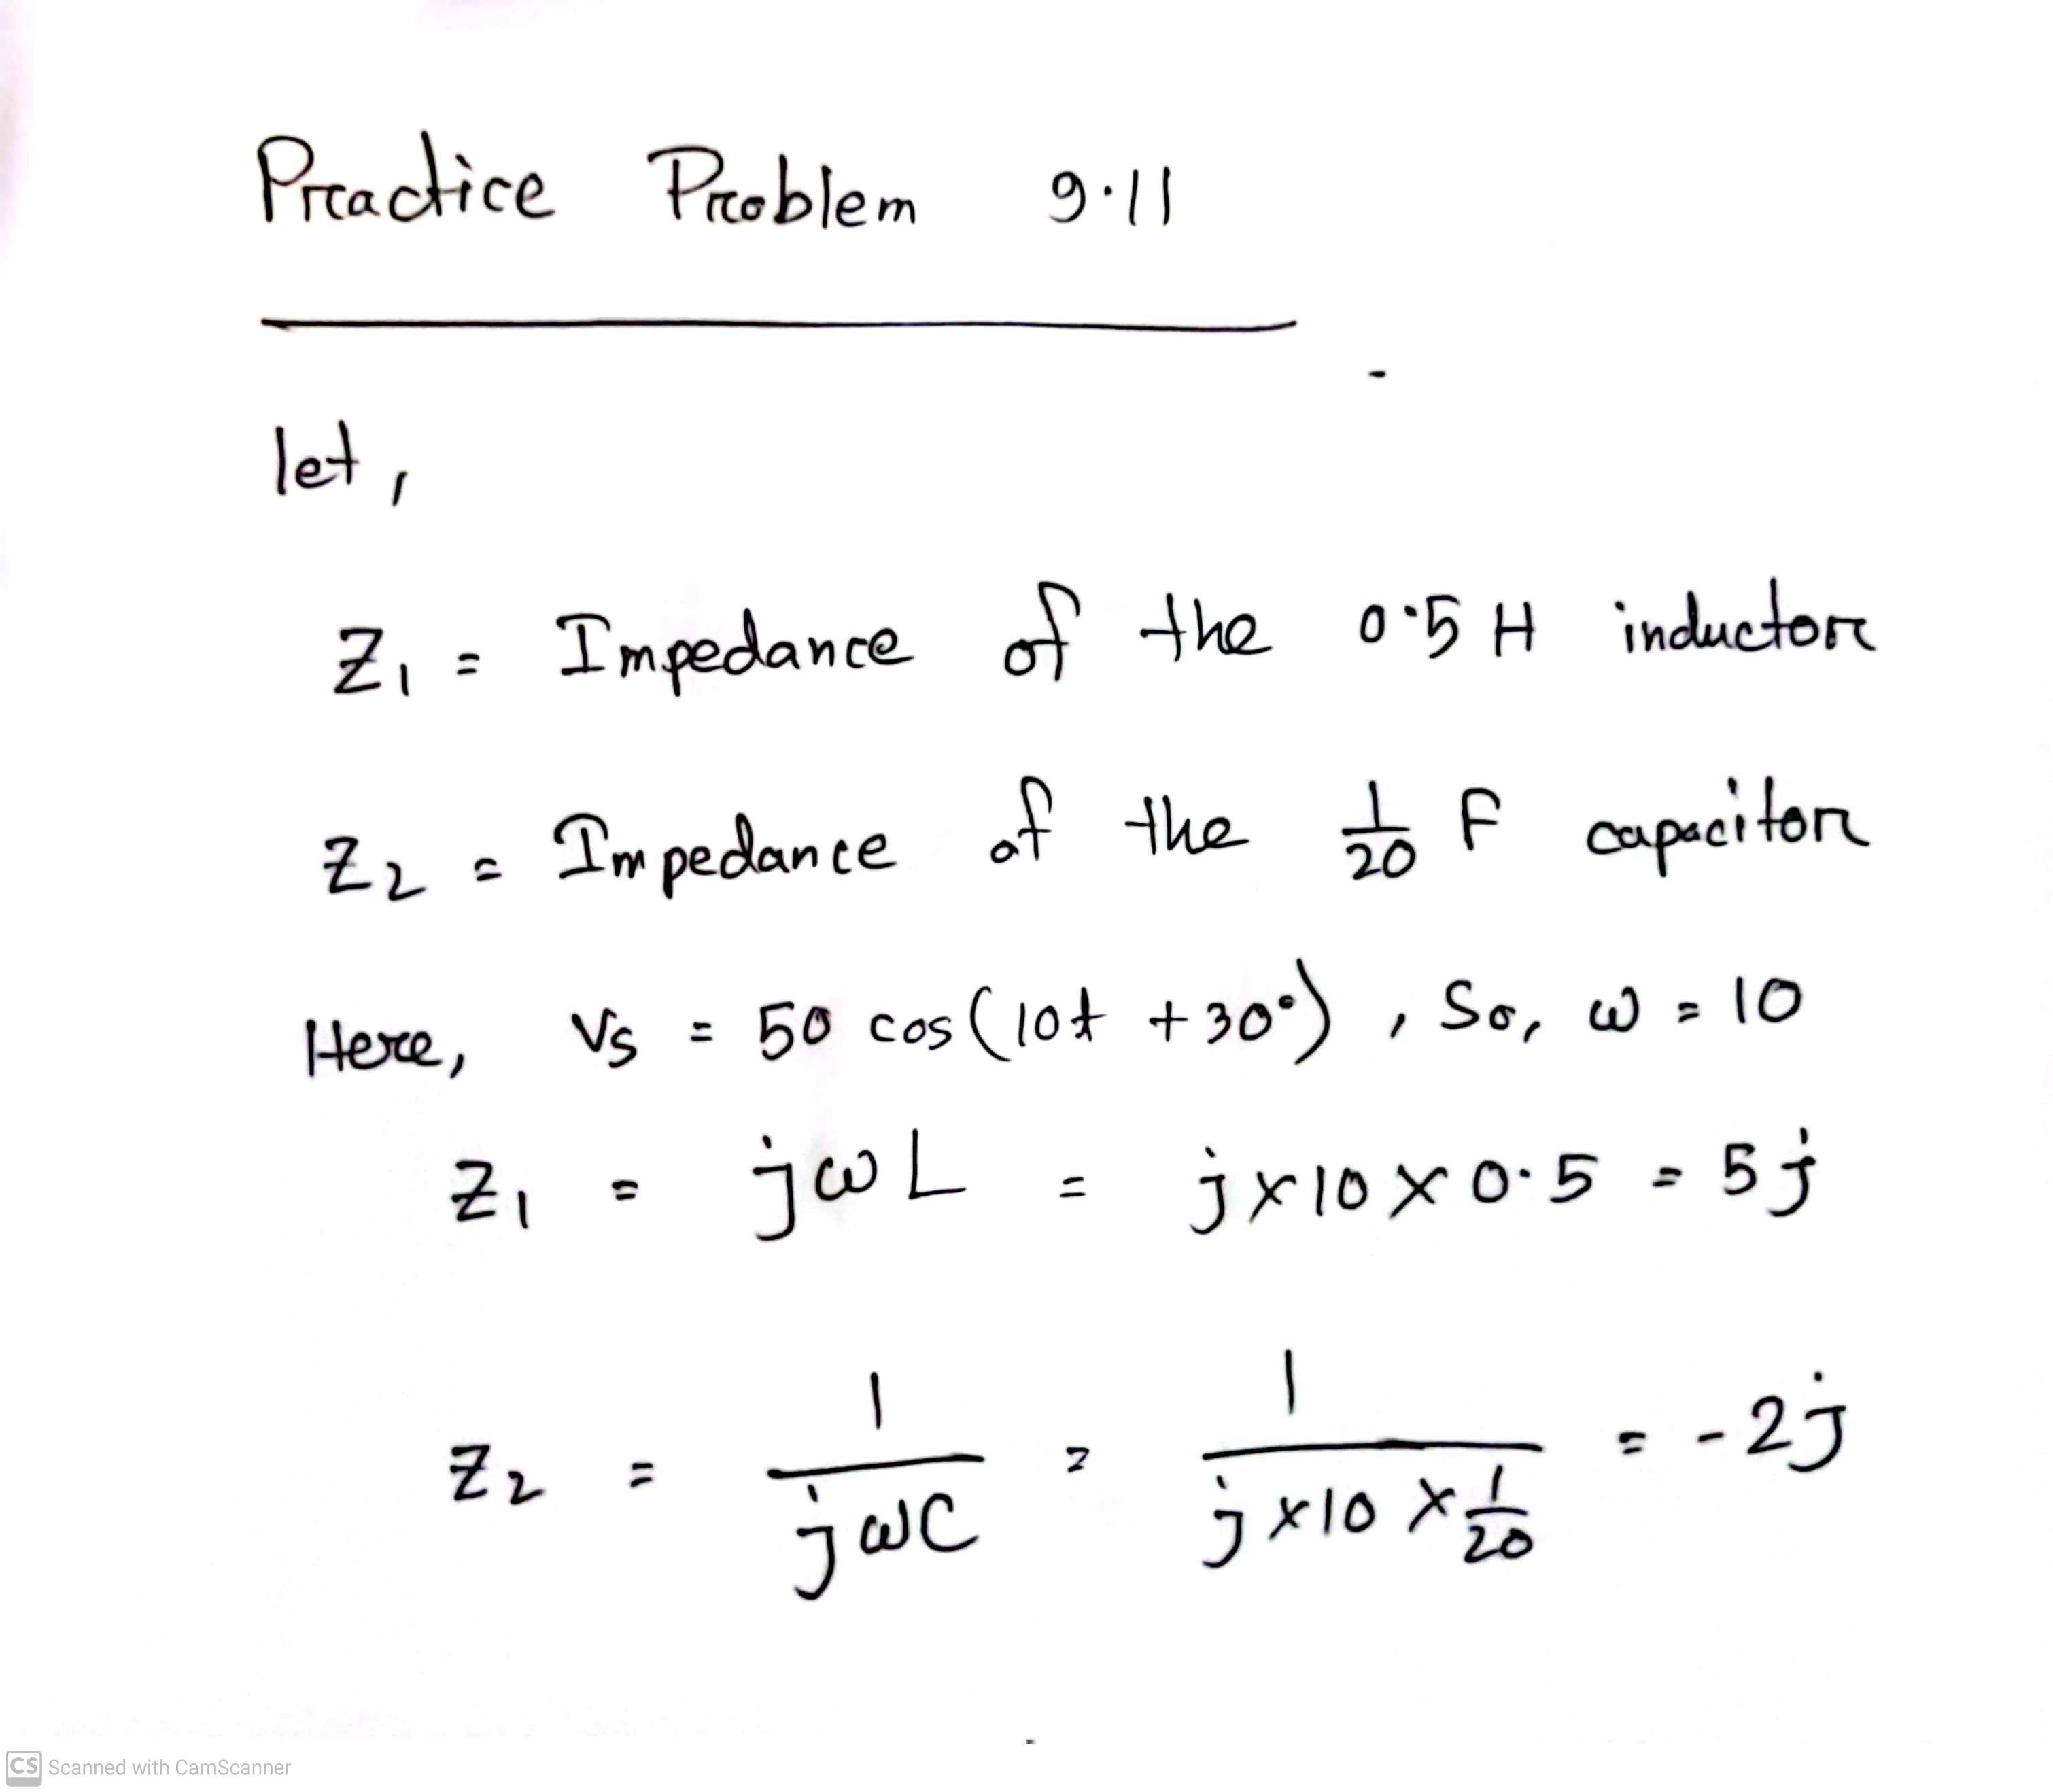 Practice Problem 9.11
let,
Z₁ = Impedance of the 0.5 H inductor
Z₂ = Impedance of the 1/20 F capacitor
Here, Vs = 50 cos(10t + 30°), So, ω = 10
Z₁ = jωL = j×10×0.5 = 5j
Z₂ = 1/jωC = 1/(j×10×1/20) = -2j
CS Scanned with CamScanner